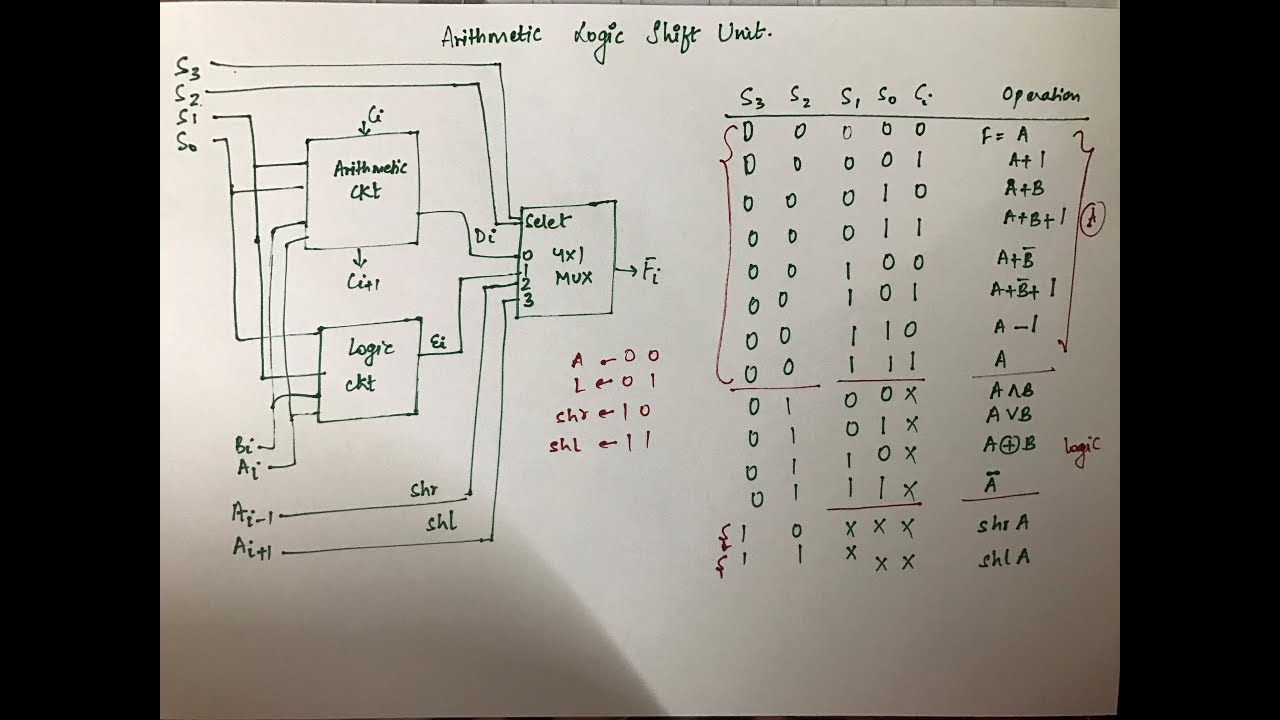 Arithmetic Logic Shift Unit.
S3
S2
S1
S0
Ci
Arithmetic
ckt
Ci+1
Di
Selet
0
1
2
3
4x1
MUX
Fi
Logic
ckt
Ei
Bi
Ai
Ai-1
shr
Ai+1
shl
A ← 0 0
L ← 0 1
shr ← 1 0
shl ← 1 1
S3 S2 S1 S0 Ci Operation
0 0 0 0 0 F = A
0 0 0 0 1 A+1
0 0 0 1 0 A+B
0 0 0 1 1 A+B+1
0 0 1 0 0 A+B̅
0 0 1 0 1 A+B̅+1
0 0 1 1 0 A-1
0 0 1 1 1 A
A
0 1 0 0 X A∧B
0 1 0 1 X A∨B
0 1 1 0 X A⊕B
0 1 1 1 X A̅
Logic
1 0 X X X shr A
1 1 X X X shl A